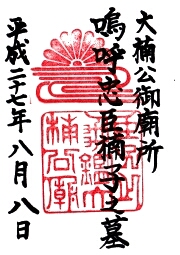 大楠公御廟所
嗚呼忠臣楠子之墓
平成二十七年八月八日
楠公廟